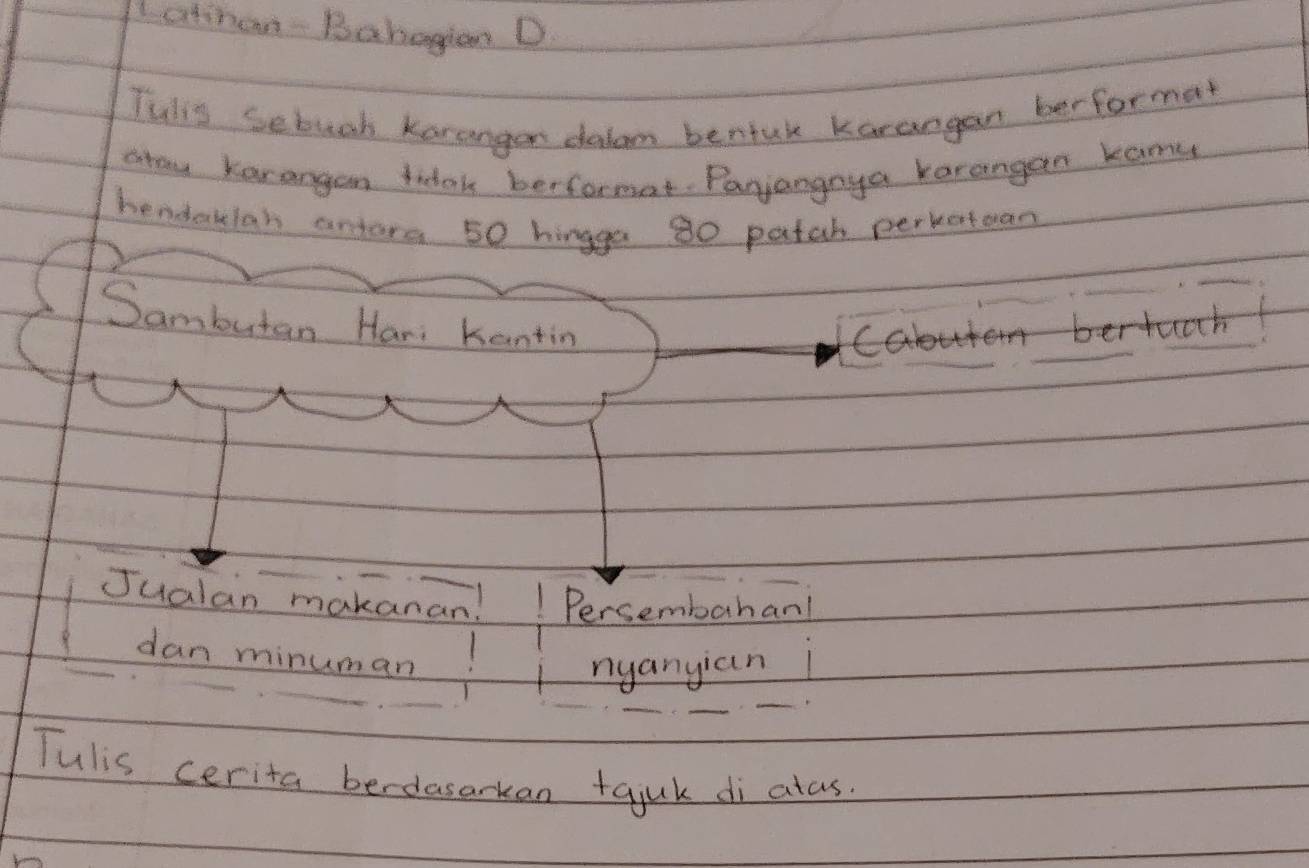 Latihan - Bahagian D.
Tulis sebuah karangan dalam bentuk karangan berformat
atau karangan tidak berformat. Panjangnya karangan kamu
hendaklah antara 50 hingga 80 patah perkataan
Sambutan Hari Kantin
Cabutan bertuah
Jualan makanan
dan minuman
Persembahan
nyanyian
Tulis cerita berdasarkan tajuk di atas.